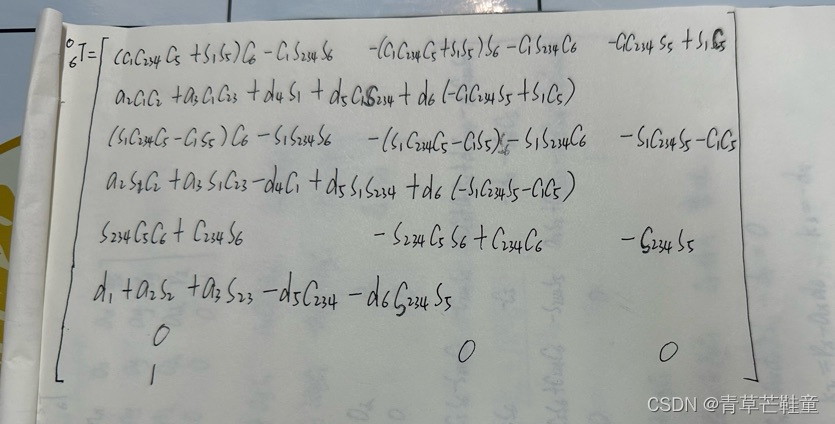 ⁰₆T = [ (C₁C₂₃₄C₅ + S₁S₅)C₆ - C₁S₂₃₄S₆ -(C₁C₂₃₄C₅+S₁S₅)S₆ - C₁S₂₃₄C₆ -C₁C₂₃₄S₅ + S₁C₅
a₂C₁C₂ + a₃C₁C₂₃ + d₄S₁ + d₅C₁S₂₃₄ + d₆(-C₁C₂₃₄S₅+S₁C₅)
(S₁C₂₃₄C₅ - C₁S₅)C₆ - S₁S₂₃₄S₆ -(S₁C₂₃₄C₅ - C₁S₅)S₆ - S₁S₂₃₄C₆ -S₁C₂₃₄S₅ - C₁C₅
a₂S₁C₂ + a₃S₁C₂₃ - d₄C₁ + d₅S₁S₂₃₄ + d₆(-S₁C₂₃₄S₅ - C₁C₅)
S₂₃₄C₅C₆ + C₂₃₄S₆ -S₂₃₄C₅S₆ + C₂₃₄C₆ -S₂₃₄S₅
d₁ + a₂S₂ + a₃S₂₃ - d₅C₂₃₄ - d₆S₂₃₄S₅
0 0 0
1 ]
CSDN @青草芒鞋童